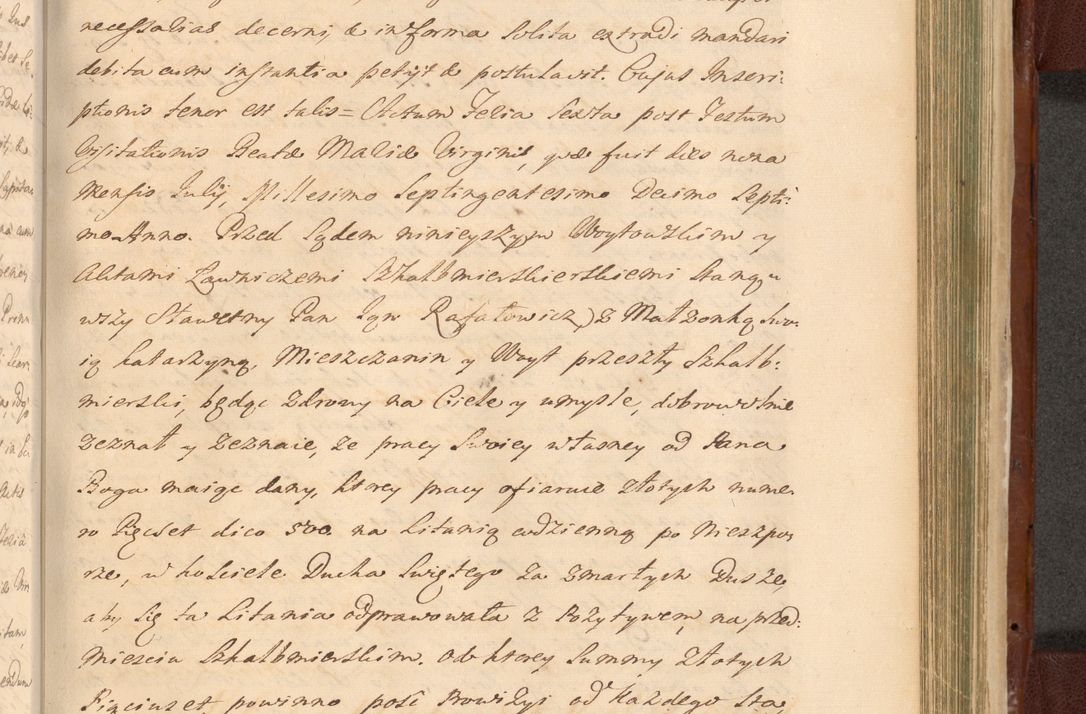 necessarias decerni, & in forma solita extradi mandari
debita cum instantia petijt & postulavit. Cujus Inscri:
ptionis tenor est talis = Actum Feria Sexta post Festum
Visitationis Beatæ Mariæ Virginis, quæ fuit dies nona
Mensis Julij, Millesimo Septingentesimo Decimo Septi:
mo Anno. Przed Sądem ninieyszym Woytowskim y
Aktami Ławniczemi Szkalbmierskierskiemi stanąw
wszy Sławetny Pan Jgn Rafałowicz) z Małżonką swo:
ią Katarzyną, Mieszczanin y Woyt przeszły Szkalb:
mierski, będąc zdrowy na Ciele y umyśle, dobrowolnie
zeznał y zeznaie, że pracy swoiey własney od Pana
Boga maiąc dany, ktorey pracy ofiaruie złotych nume-
ro Pięćset dico 500. na Litanią codzienną po Nieszpo-
rze, w kościele Ducha Swiętego za zmarłych Dusze,
aby się ta Litania odprawowała z Pożytywem, na przed:
mieściu Szkalbmierskim. Od ktorey Summy złotych
Pięciuset powinno pość Prowizyi od każdego Sta,